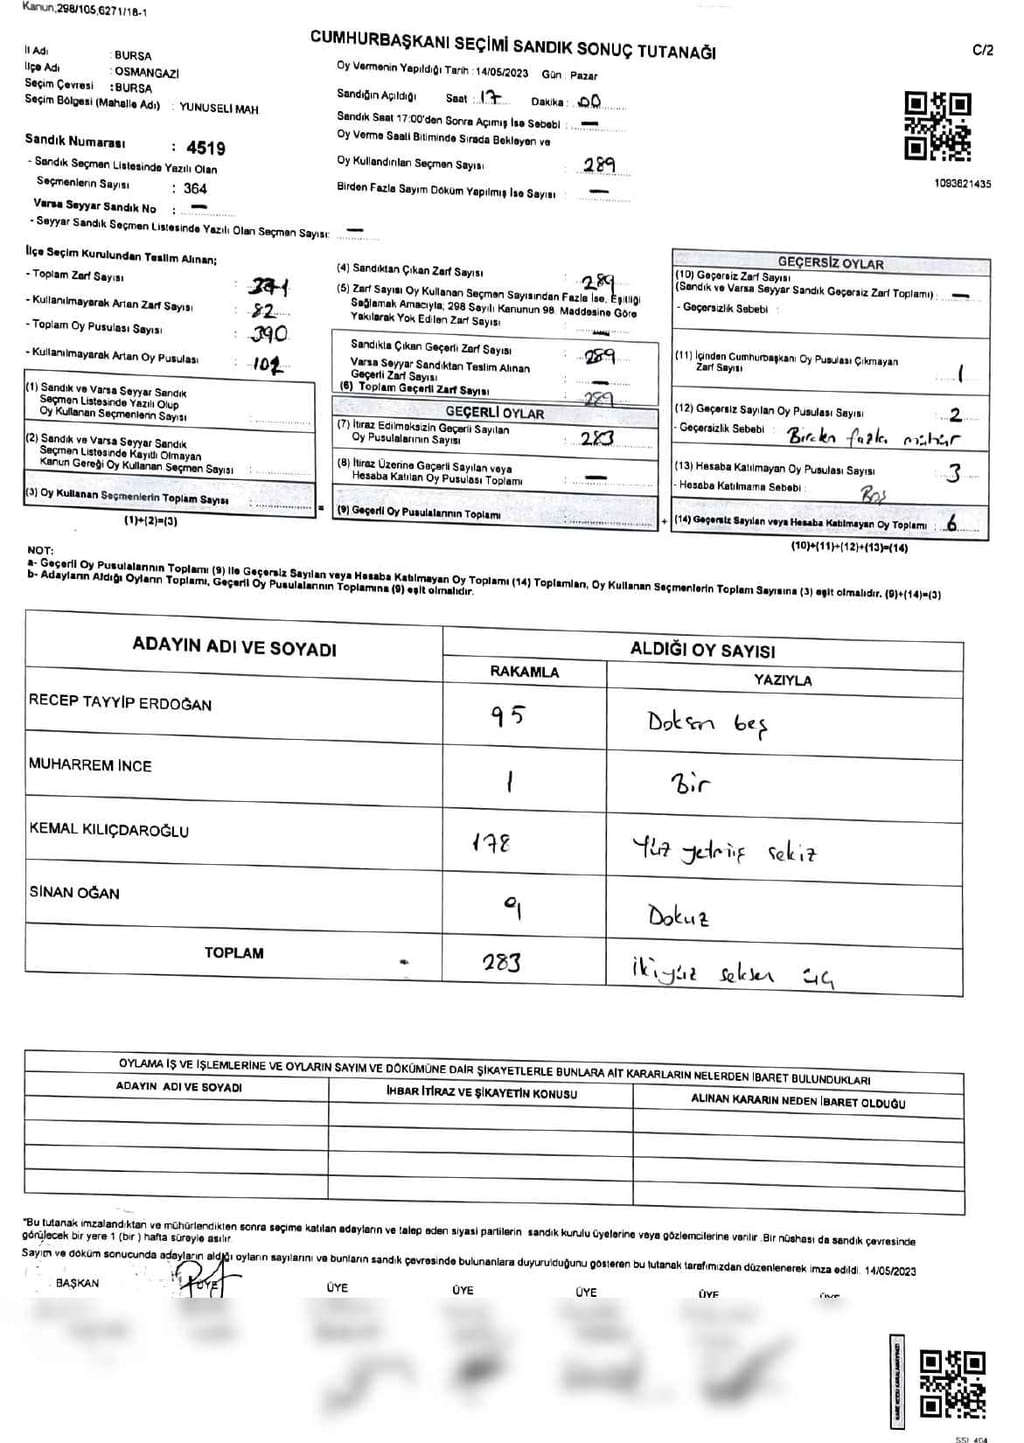 Kanun,298/105,6271/18-1
CUMHURBAŞKANI SEÇİMİ SANDIK SONUÇ TUTANAĞI
C/2
İl Adı : BURSA
İlçe Adı : OSMANGAZİ
Seçim Çevresi : BURSA
Seçim Bölgesi (Mahalle Adı) : YUNUSELİ MAH
Sandık Numarası : 4519
- Sandık Seçmen Listesinde Yazılı Olan
Seçmenlerin Sayısı : 364
Varsa Seyyar Sandık No : —
- Seyyar Sandık Seçmen Listesinde Yazılı Olan Seçmen Sayısı: —
Oy Vermenin Yapıldığı Tarih : 14/05/2023 Gün : Pazar
Sandığın Açıldığı Saat : 17 Dakika : 00
Sandık Saat 17:00'den Sonra Açmış İse Sebebi : —
Oy Verme Saati Bitiminde Sırada Bekleyen ve
Oy Kullandırılan Seçmen Sayısı : 289
Birden Fazla Sayım Döküm Yapılmış İse Sayısı : —
1093621435
İlçe Seçim Kurulundan Teslim Alınan;
- Toplam Zarf Sayısı : 371
- Kullanılmayarak Artan Zarf Sayısı : 82
- Toplam Oy Pusulası Sayısı : 390
- Kullanılmayarak Artan Oy Pusulası : 102
(1) Sandık ve Varsa Seyyar Sandık
Seçmen Listesinde Yazılı Olup
Oy Kullanan Seçmenlerin Sayısı :
(2) Sandık ve Varsa Seyyar Sandık
Seçmen Listesinde Kayıtlı Olmayan
Kanun Gereği Oy Kullanan Seçmen Sayısı :
(3) Oy Kullanan Seçmenlerin Toplam Sayısı :
(1)+(2)=(3)
(4) Sandıktan Çıkan Zarf Sayısı : 289
(5) Zarf Sayısı Oy Kullanan Seçmen Sayısından Fazla İse, Eşitliği
Sağlamak Amacıyla; 298 Sayılı Kanunun 98. Maddesine Göre
Yakılarak Yok Edilen Zarf Sayısı : —
Sandıkta Çıkan Geçerli Zarf Sayısı : 289
Varsa Seyyar Sandıktan Teslim Alınan
Geçerli Zarf Sayısı : —
(6) Toplam Geçerli Zarf Sayısı : 289
GEÇERLİ OYLAR
(7) İtiraz Edilmeksizin Geçerli Sayılan
Oy Pusulalarının Sayısı : 283
(8) İtiraz Üzerine Geçerli Sayılan veya
Hesaba Katılan Oy Pusulası Toplamı : —
= (9) Geçerli Oy Pusulalarının Toplamı :
GEÇERSİZ OYLAR
(10) Geçersiz Zarf Sayısı
(Sandık ve Varsa Seyyar Sandık Geçersiz Zarf Toplamı) : —
- Geçersizlik Sebebi :
(11) İçinden Cumhurbaşkanı Oy Pusulası Çıkmayan
Zarf Sayısı : 1
(12) Geçersiz Sayılan Oy Pusulası Sayısı : 2
- Geçersizlik Sebebi : Birden fazla mühür
(13) Hesaba Katılmayan Oy Pusulası Sayısı : 3
- Hesaba Katılmama Sebebi : Boş
+ (14) Geçersiz Sayılan veya Hesaba Katılmayan Oy Toplamı : 6
(10)+(11)+(12)+(13)=(14)
NOT:
a- Geçerli Oy Pusulalarının Toplamı (9) İle Geçersiz Sayılan veya Hesaba Katılmayan Oy Toplamı (14) Toplamları, Oy Kullanan Seçmenlerin Toplam Sayısına (3) eşit olmalıdır. (9)+(14)=(3)
b- Adayların Aldığı Oyların Toplamı, Geçerli Oy Pusulalarının Toplamına (9) eşit olmalıdır.
ADAYIN ADI VE SOYADI ALDIĞI OY SAYISI
RAKAMLA YAZIYLA
RECEP TAYYİP ERDOĞAN 95 Doksan beş
MUHARREM İNCE 1 Bir
KEMAL KILIÇDAROĞLU 178 Yüz yetmiş sekiz
SİNAN OĞAN 9 Dokuz
TOPLAM 283 ikiyüz seksen üç
OYLAMA İŞ VE İŞLEMLERİNE VE OYLARIN SAYIM VE DÖKÜMÜNE DAİR ŞİKAYETLERLE BUNLARA AİT KARARLARIN NELERDEN İBARET BULUNDUKLARI
ADAYIN ADI VE SOYADI İHBAR İTİRAZ VE ŞİKAYETİN KONUSU ALINAN KARARIN NEDEN İBARET OLDUĞU
"Bu tutanak imzalandıktan ve mühürlendikten sonra seçime katılan adayların ve talep eden siyasi partilerin sandık kurulu üyelerine veya gözlemcilerine verilir. Bir nüshası da sandık çevresinde
görülecek bir yere 1 (bir) hafta süreyle asılır.
Sayım ve döküm sonucunda adayların aldığı oyların sayılarını ve bunların sandık çevresinde bulunanlara duyurulduğunu gösteren bu tutanak tarafımızdan düzenlenerek imza edildi. 14/05/2023
BAŞKAN ÜYE ÜYE ÜYE ÜYE ÜYE ÜYE
SSI 404